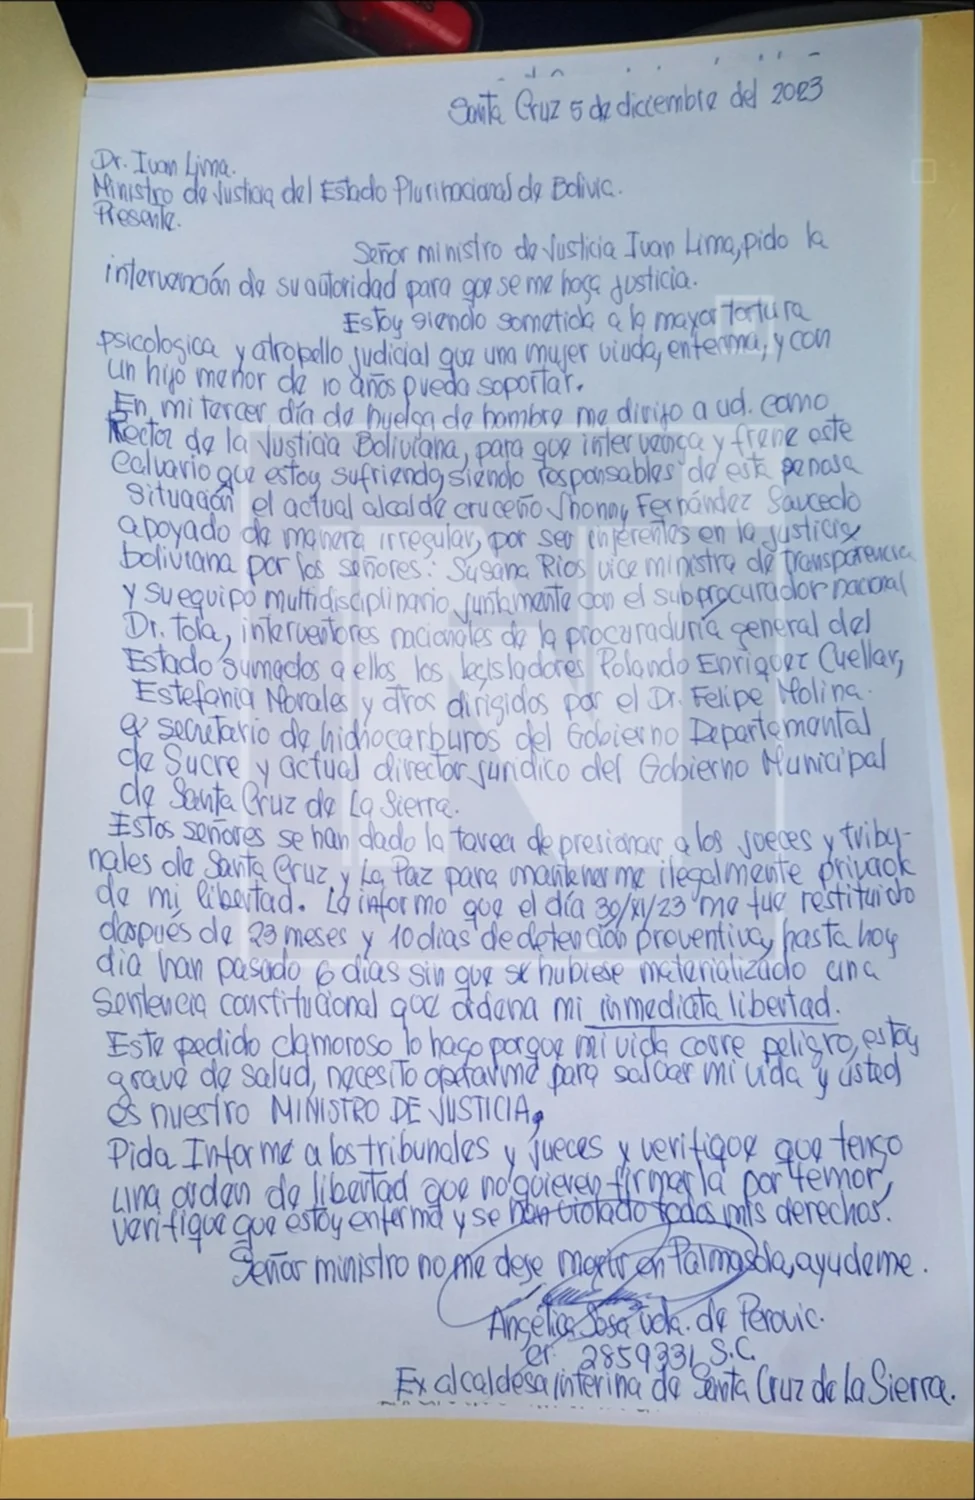 Santa Cruz 5 de diciembre del 2023
Dr. Ivan Lima.
Ministro de Justicia del Estado Plurinacional de Bolivia.
Presente.
Señor ministro de Justicia Ivan Lima, pido la
intervención de su autoridad para que se me haga justicia.
Estoy siendo sometida a la mayor tortura
psicologica y atropello judicial que una mujer viuda, enferma, y con
un hijo menor de 10 años pueda soportar.
En mi tercer día de huelga de hambre me dirijo a ud. como
Rector de la Justicia Boliviana, para que intervenga y frene este
calvario que estoy sufriendo, siendo responsables de esta penosa
situación el actual alcalde cruceño Jhonny Fernández Saucedo
apoyado de manera irregular, por ser inferentes en la justicia
boliviana por los señores: Susana Rios vice ministra de transparencia
y su equipo multidisciplinario juntamente con el subprocurador nacional
Dr. Tola, interventores nacionales de la procuraduría general del
Estado sumados a ellos los legisladores Rolando Enriquez Cuellar,
Estefania Morales y otros dirigidos por el Dr. Felipe Molina.
ex secretario de hidrocarburos del Gobierno Departamental
de Sucre y actual director jurídico del Gobierno Municipal
de Santa Cruz de La Sierra.
Estos señores se han dado la tarea de presionar a los jueces y tribu-
nales de Santa Cruz y La Paz para mantenerme ilegalmente privada
de mi libertad. Le informo que el día 30/XI/23 me fue restituido
después de 23 meses y 10 días de detención preventiva, hasta hoy
día han pasado 6 días sin que se hubiese materializado una
sentencia constitucional que ordena mi inmediata libertad.
Este pedido clamoroso lo hago porque mi vida corre peligro, estoy
grave de salud, necesito operarme para salvar mi vida y usted
es nuestro MINISTRO DE JUSTICIA,
Pida Informe a los tribunales y jueces y verifique que tengo
una orden de libertad que no quieren firmarla por temor,
verifique que estoy enferma y se han violado todos mis derechos.
Señor ministro no me deje morir en Palmasola, ayudeme.
Angélica Sosa vda. de Perovic.
CI: 2859331 S.C.
Ex alcaldesa interina de Santa Cruz de La Sierra.